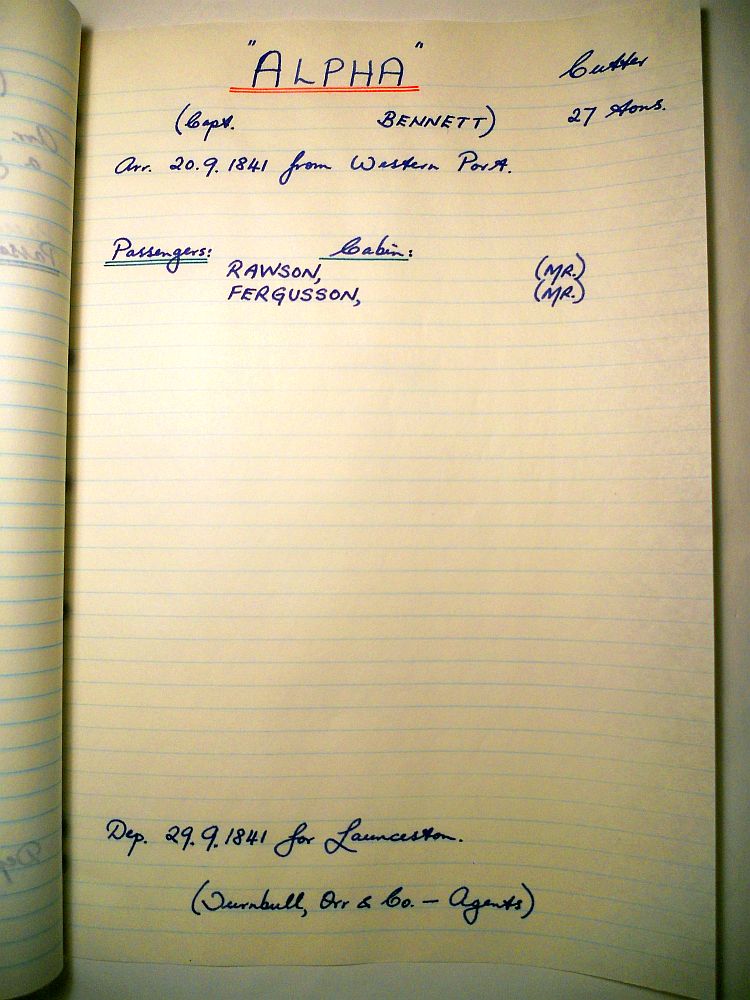 "ALPHA" Cutter
(Capt. BENNETT) 27 tons.
Arr. 20.9.1841 from Western Port.
Passengers: Cabin:
RAWSON, (MR.)
FERGUSSON, (MR.)
Dep. 29.9.1841 for Launceston.
(Turnbull, Orr & Co. — Agents)